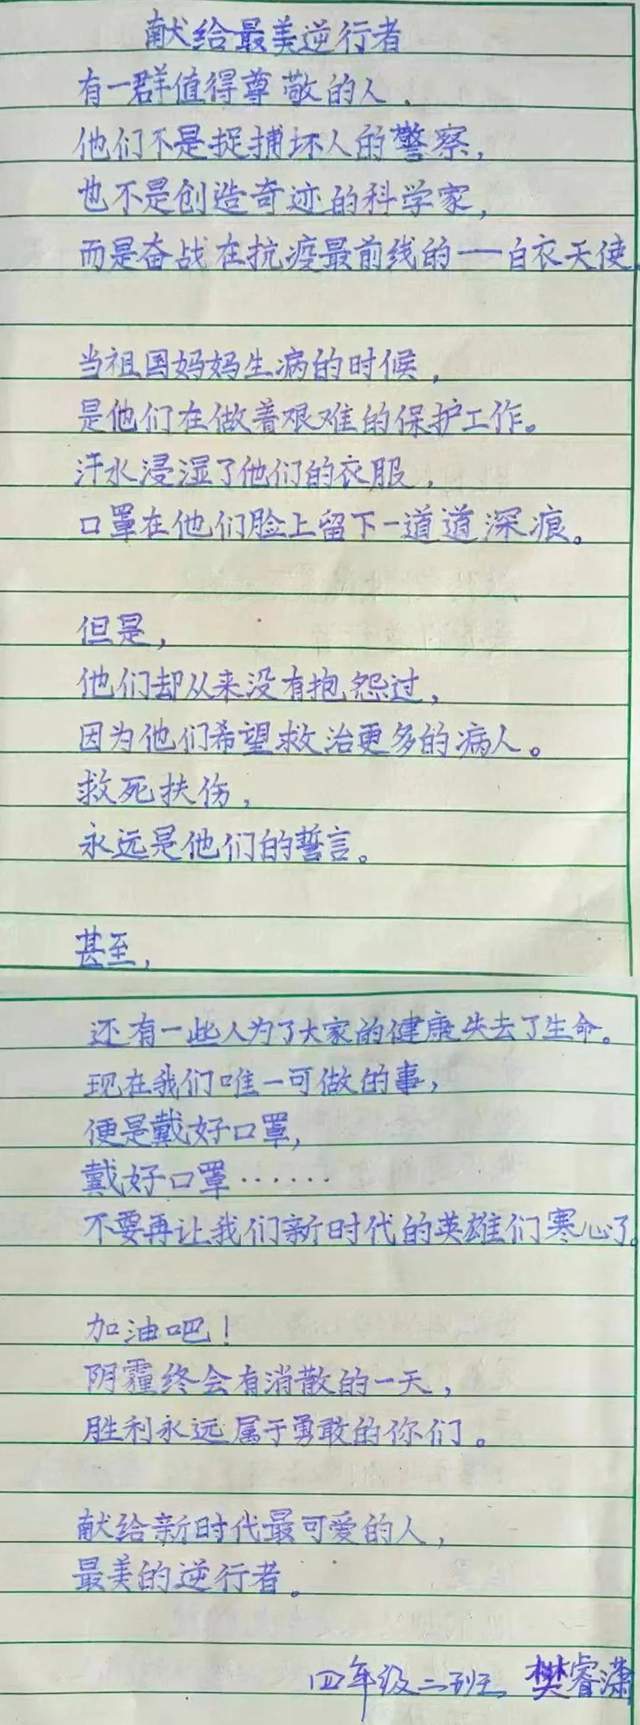 献给最美逆行者
有一群值得尊敬的人，
他们不是捉捕坏人的警察，
也不是创造奇迹的科学家，
而是奋战在抗疫最前线的——白衣天使。
当祖国妈妈生病的时候，
是他们在做着艰难的保护工作。
汗水浸湿了他们的衣服，
口罩在他们脸上留下一道道深痕。
但是，
他们却从来没有抱怨过，
因为他们希望救治更多的病人。
救死扶伤，
永远是他们的誓言。
甚至，
还有一些人为了大家的健康失去了生命。
现在我们唯一可做的事，
便是戴好口罩，
戴好口罩······
不要再让我们新时代的英雄们寒心了。
加油吧！
阴霾终会有消散的一天，
胜利永远属于勇敢的你们。
献给新时代最可爱的人，
最美的逆行者。
四年级二班 樊睿潇